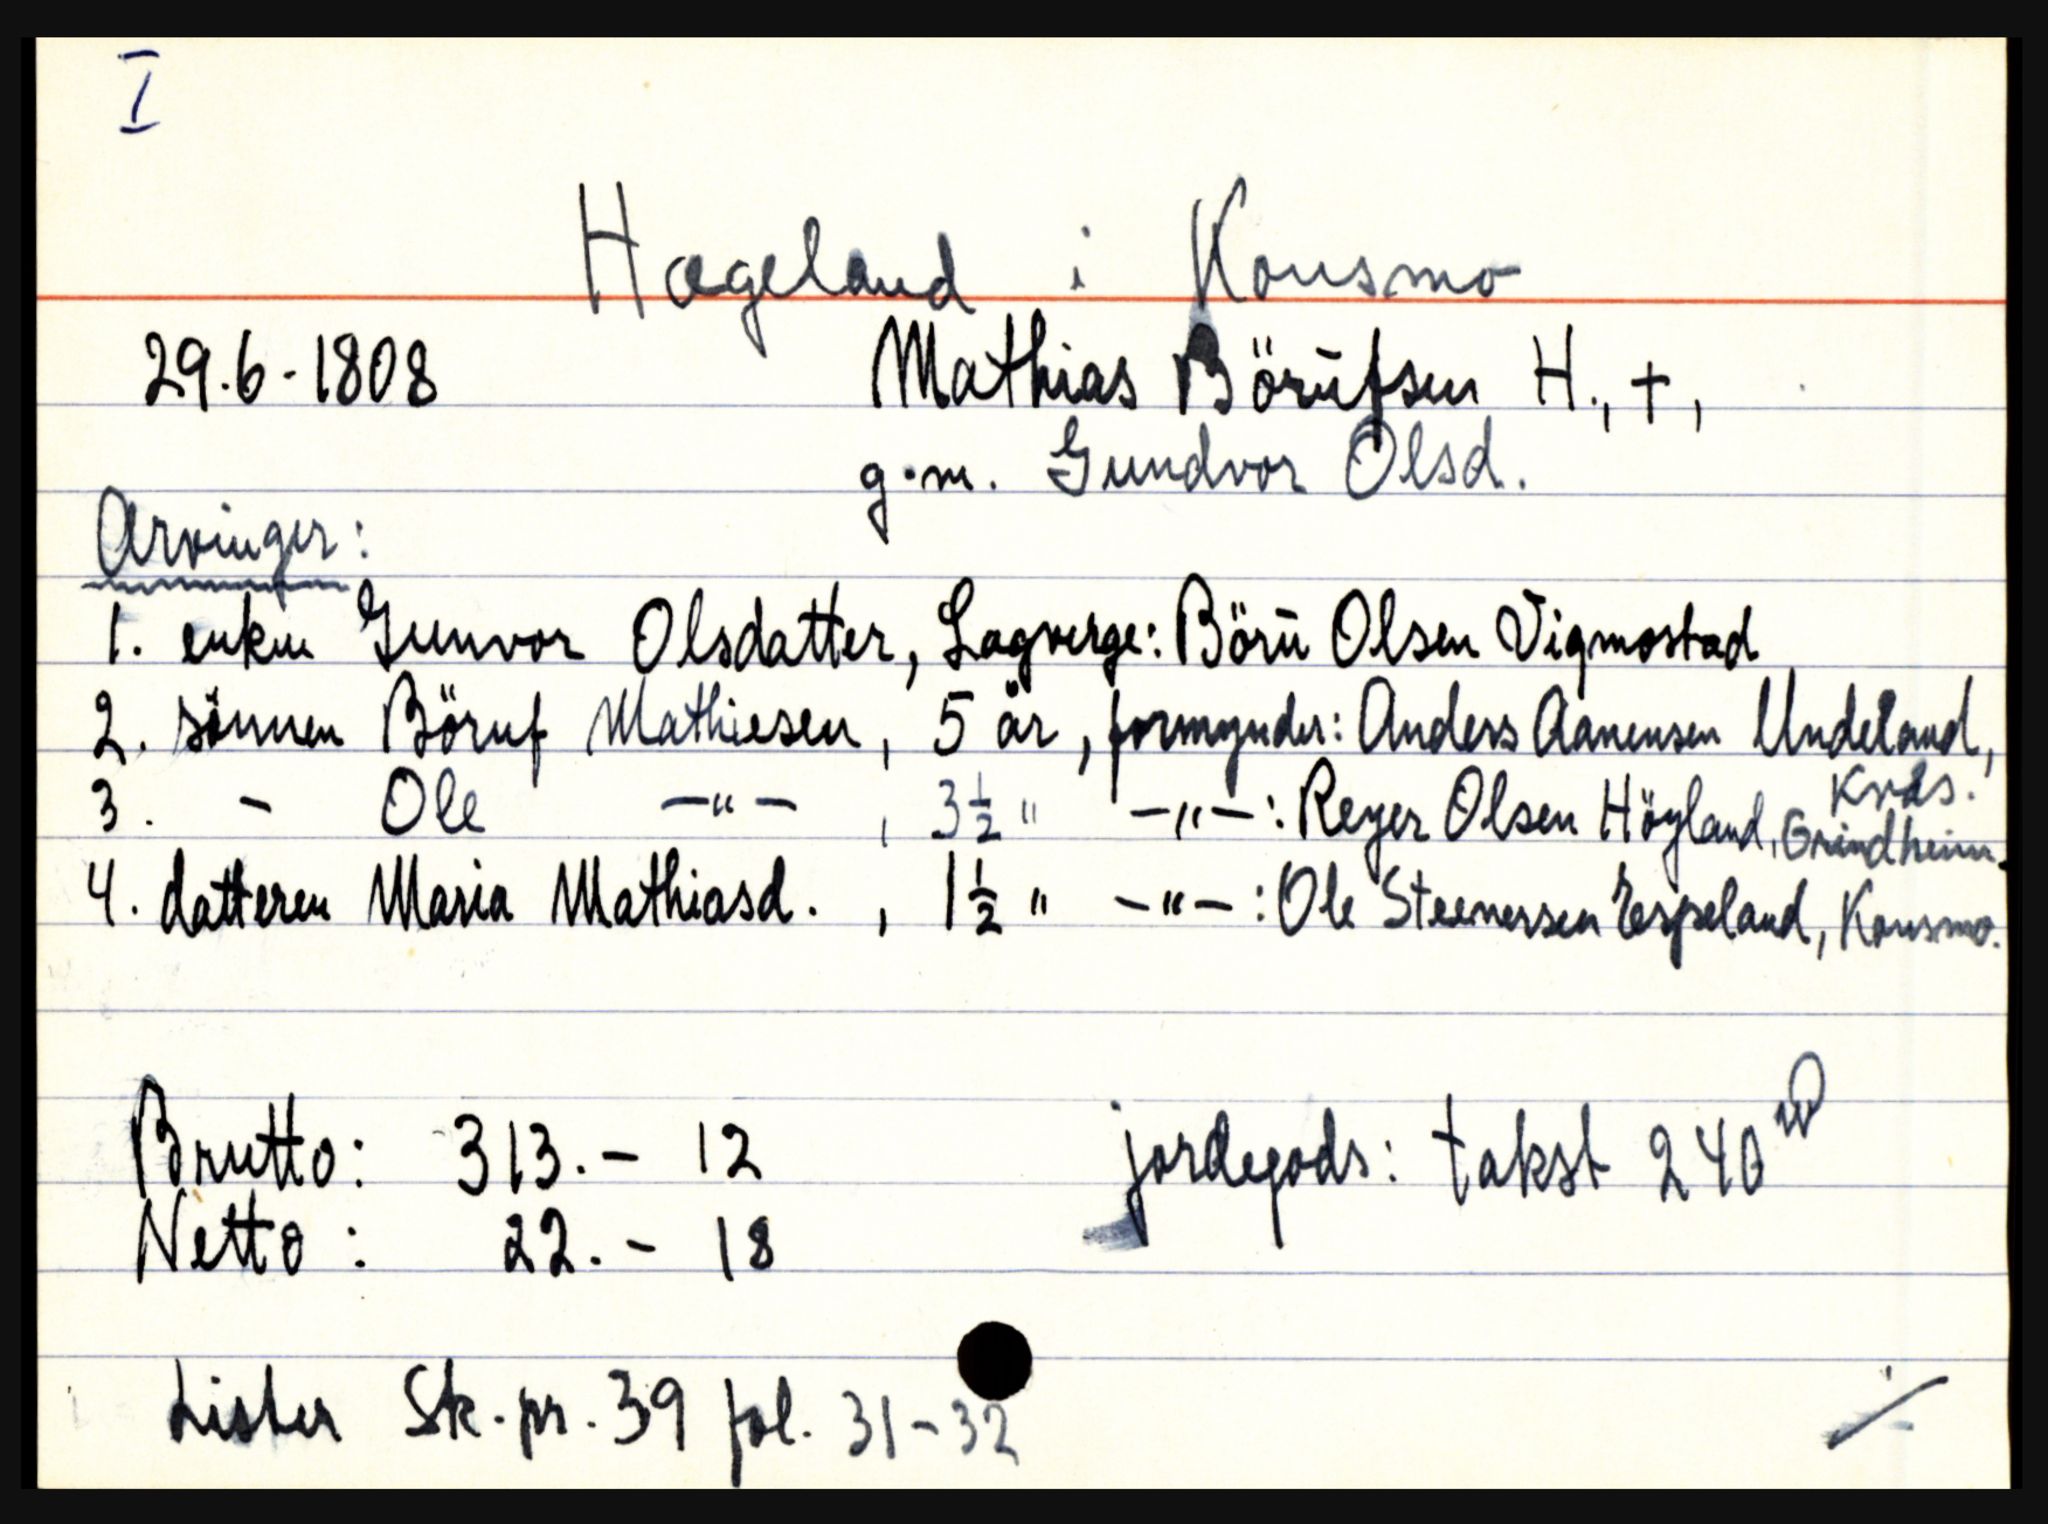 I
Hægeland i Konsmo
29.6-1808 Mathias Börufsen H., †,
g.m. Gundvor Olsd.
Arvinger:
1. enken Gunvor Olsdatter, Lagverge: Börü Olsen Vigmostad
2. sönnen Böruf Mathiesen, 5 år, formynder: Anders Aanensen Undeland,
Kvås.
3. - Ole —"— , 3½ " —"—: Reyer Olsen Höyland, Grindheim.
4. datteren Maria Mathiasd. , 1½ " —"—: Ole Steenersen Espeland, Konsmo.
Brutto: 313.- 12 jordegods: takst 240
Netto: 22.- 18
Lister Sk.pr. 39 fol. 31-32